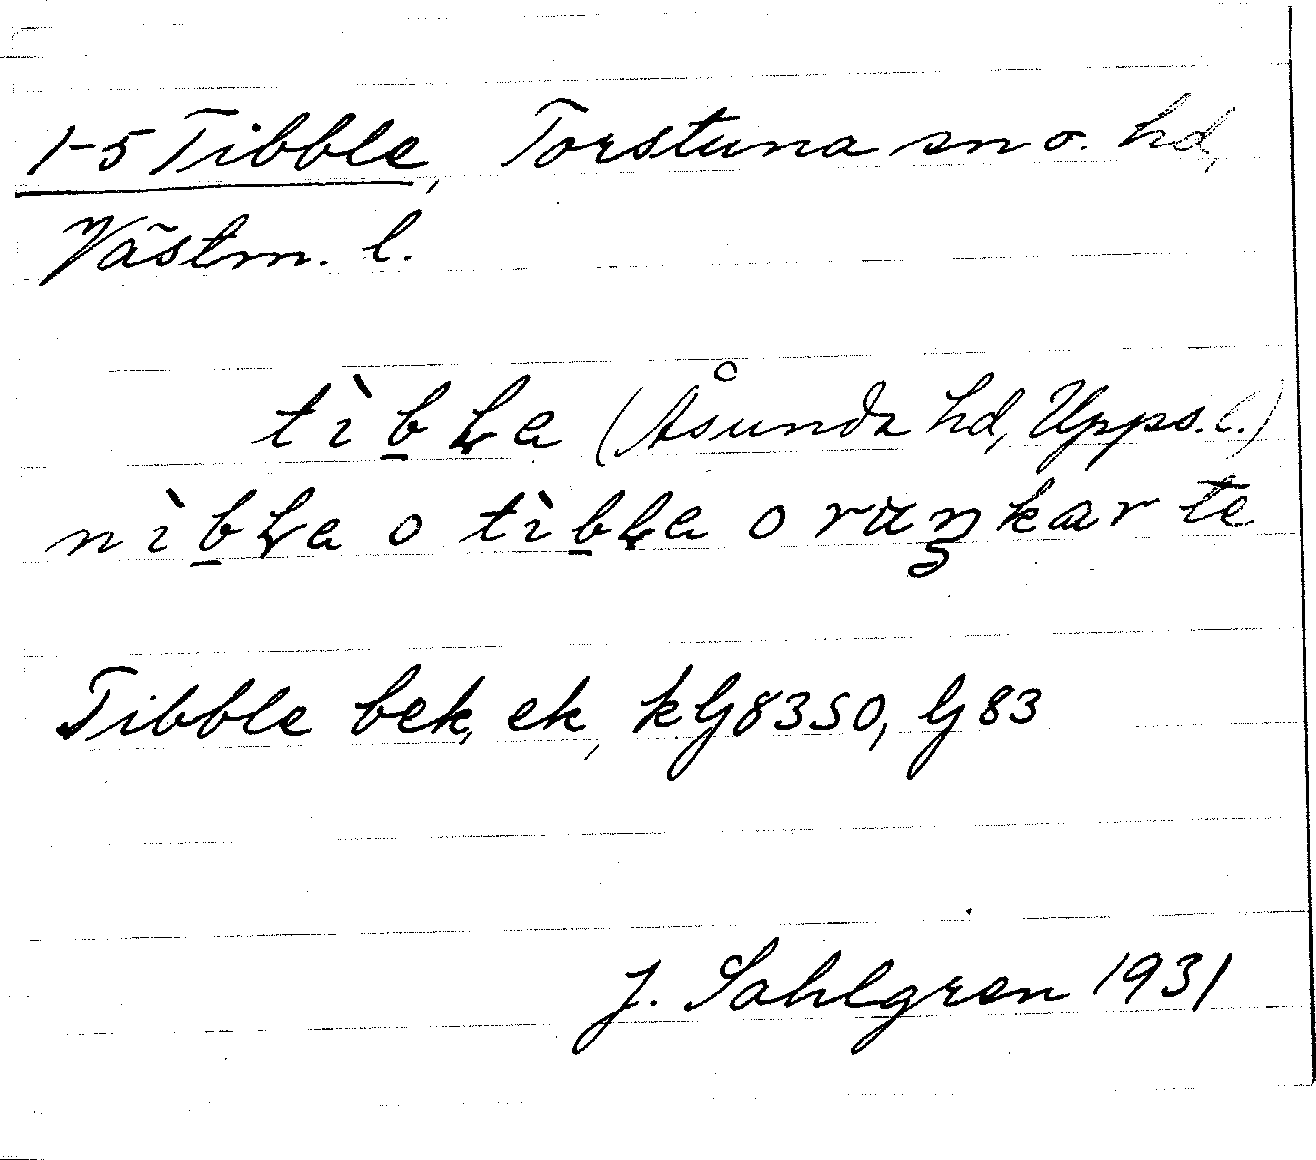 1-5 Tibble, Torstuna sn o. hd,
Västm. l.
tìb̲ɫa (Åsunda hd, Upps. l.)
nìb̲ɫa o tìb̲ɫa o raŋkar te
Tibble bek, ek, kG8350, G83
J. Sahlgren 1931